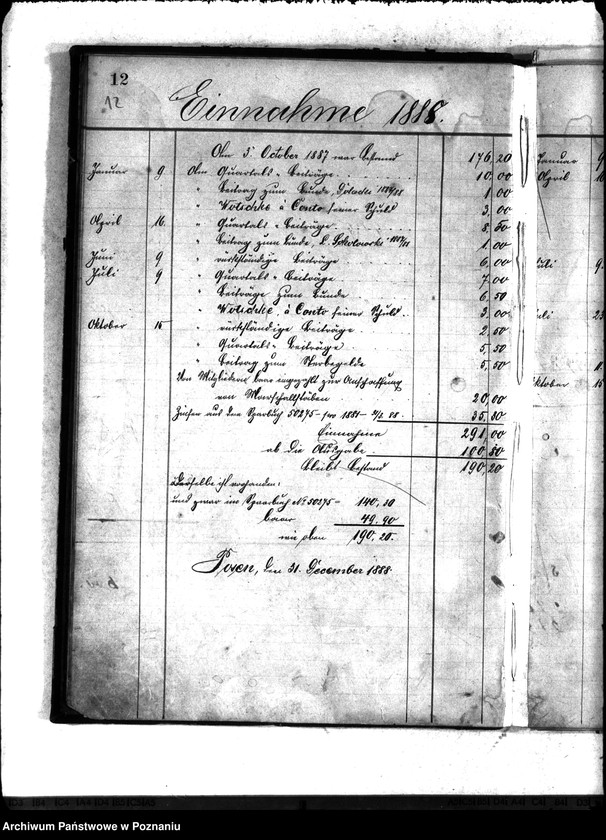 12
12
Einnahme 1888.
Am 3. October 1887 war Bestand 176,20
Januar 9. An Quartals-Beiträge 10,00
" Beitrag zum Bunde 1,00
" Wotschke à Conto seiner Schuld 3,00
April 16. " Quartals-Beiträge 8,50
" Beitrag zum Bunde, 1,00
Juni 9 " rückständige Beiträge 6,00
Juli 9 " Quartals-Beiträge 7,00
" Beiträge zum Bunde 6,50
" Wotschke, à Conto seiner Schuld. 3,00
Oktober 15 " rückständige Beiträge. 2,50
" Quartals-Beiträge 5,50
" Beitrag zum Sterbegelde 5,50
Von Mitgliedern baar eingezahlt zur Anschaffung
von Marschallstäben 20,00
Zinsen aus dem Sparbuch 50275 35,30
Einnahme 291,00
ab die Ausgabe 100,80
bleibt Bestand 190,20
Derselbe ist vorhanden:
und zwar im Sparbuch No 50275 - 140,30
baar 49,90
wie oben 190,20.
Posen, den 31. December 1888.
Januar 9
April 16
Juli 9.
Juli 23
Oktober 15
Archiwum Państwowe w Poznaniu